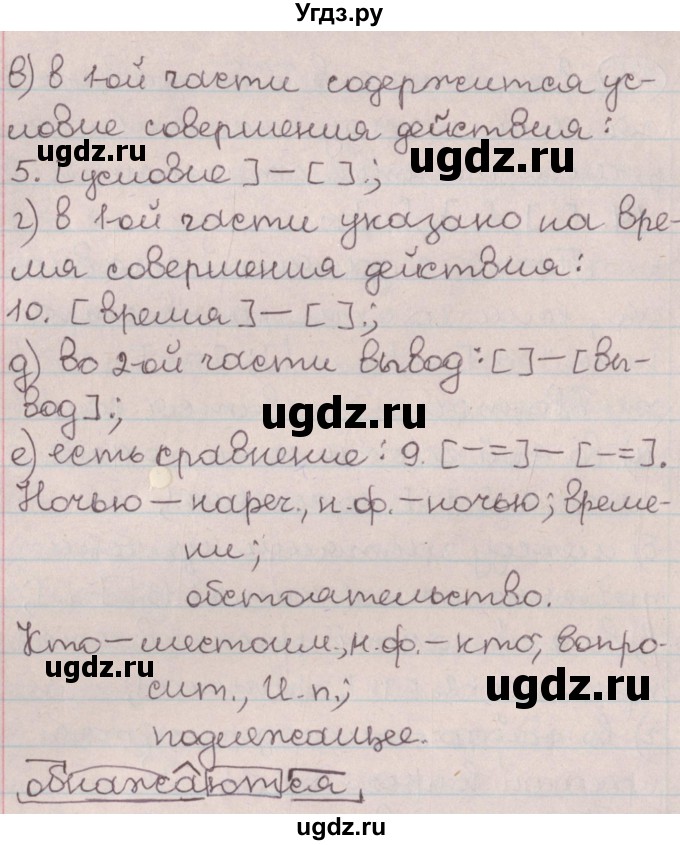 Угдз.ру
в) в 1-ой части содержится ус-
ловие совершения действия:
ugdz.ru ugdz.ru
5. [условие] — [ ].;
г) в 1-ой части указано на вре-
мя совершения действия:
10. [время] — [ ].;
д) во 2-ой части вывод: [ ] — [вы-
вод].;
ugdz.ru
е) есть сравнение: 9. [-=] — [-=].
Ночью — нареч., н.ф. — ночью; време-
ugdz.ru ugdz.ru
ни;
обстоятельство.
Кто — местоим., н.ф. — кто; вопро-
ugdz.ru ugdz.ru
сит., И.п.;
подлежащее.
обнажаются
ugdz.ru